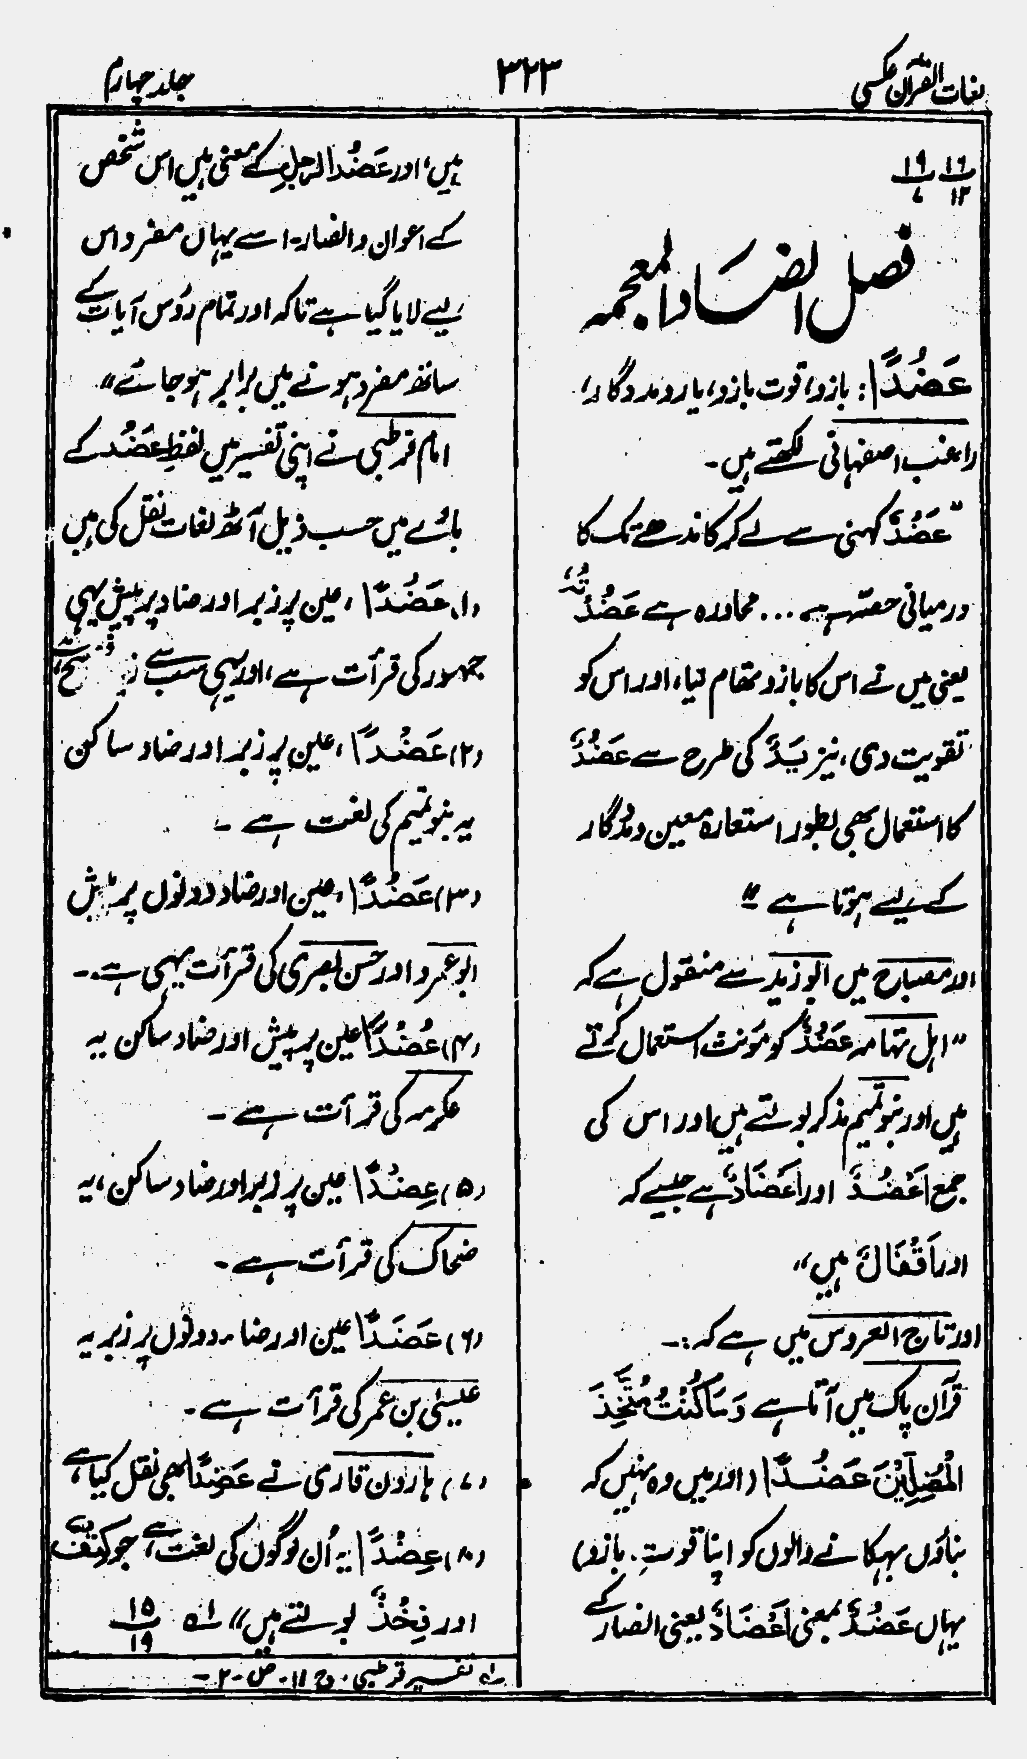 لغات القرآن عکسی
۳۲۳
جلد چہارم
۱۶ ۱۹
۱۲ ۷
فصل الضاد المعجمہ
عَضُدًا: بازو، قوت بازو، یار و مددگار، امام
راغب اصفہانی لکھتے ہیں۔
”عَضُدٌ کہنی سے لے کر کاندھے تک کا
درمیانی حصہ ہے ... محاورہ ہے عَضُدْتُہٗ
یعنی میں نے اس کا بازو تھام لیا، اور اس کو
تقویت دی، نیز یَدٌ کی طرح سے عَضُدٌ
کا استعمال بھی بطور استعارہ معین و مددگار
کے لیے ہوتا ہے“
المصباح میں ابو زید سے منقول ہے کہ
”اہل تہامہ عَضُدٌ کو مونث استعمال کرتے
ہیں اور بنو تمیم مذکر بولتے ہیں اور اس کی
جمع اَعْضُدٌ اور اَعْضَادٌ ہے جیسے کہ
اور اَقْفَالٌ ہیں“
اور تاج العروس میں ہے کہ :۔
قرآن پاک میں آتا ہے وَمَا كُنْتُ مُتَّخِذَ
الْمُضِلِّيْنَ عَضُدًا (اور میں وہ نہیں کہ
بناؤں بہکانے والوں کو اپنا قوتِ بازو)
یہاں عَضُدٌ بمعنی اَعْضَادٌ یعنی انصار کے
ہیں، اور عَضُدُ الرجلِ کے معنی ہیں اس شخص
کے اعوان و انصار۔ اسے یہاں مفرد اس
لیے لایا گیا ہے تاکہ اور تمام رؤس آیات کے
ساتھ مفرد ہونے میں برابر ہو جائے“
امام قرطبی نے اپنی تفسیر میں لفظ عَضُد کے
بارے میں حسب ذیل آٹھ لغات نقل کی ہیں
(۱) عَضُدًا، عین پر زبر اور ضاد پر پیش یہی
جمہور کی قرأت ہے، اور یہی سب سے
(۲) عَضْدًا، عین پر زبر اور ضاد ساکن
یہ بنو تمیم کی لغت ہے ۔
(۳) عُضُدًا، عین اور ضاد دونوں پر پیش
ابو عمرو اور حسن بصری کی قرأت یہی ہے۔
(۴) عُضْدًا عین پر پیش اور ضاد ساکن یہ
عکرمہ کی قرأت ہے ۔
(۵) عِضْدًا عین پر زیر اور ضاد ساکن، یہ
ضحاک کی قرأت ہے ۔
(۶) عَضَدًا عین اور ضاد دونوں پر زبر یہ
عیسیٰ بن عمر کی قرأت ہے ۔
(۷) ہارون قاری نے عَضِدًا بھی نقل کیا ہے
(۸) عِضْدًا یہ اُن لوگوں کی لغت ہے، جو کِتْفٌ
اور فِخْذٌ بولتے ہیں“ ۱ھ ۱۵
۱۹
۱ھ تفسیر قرطبی، ج ۱۱۔ ص۔ ۲۔